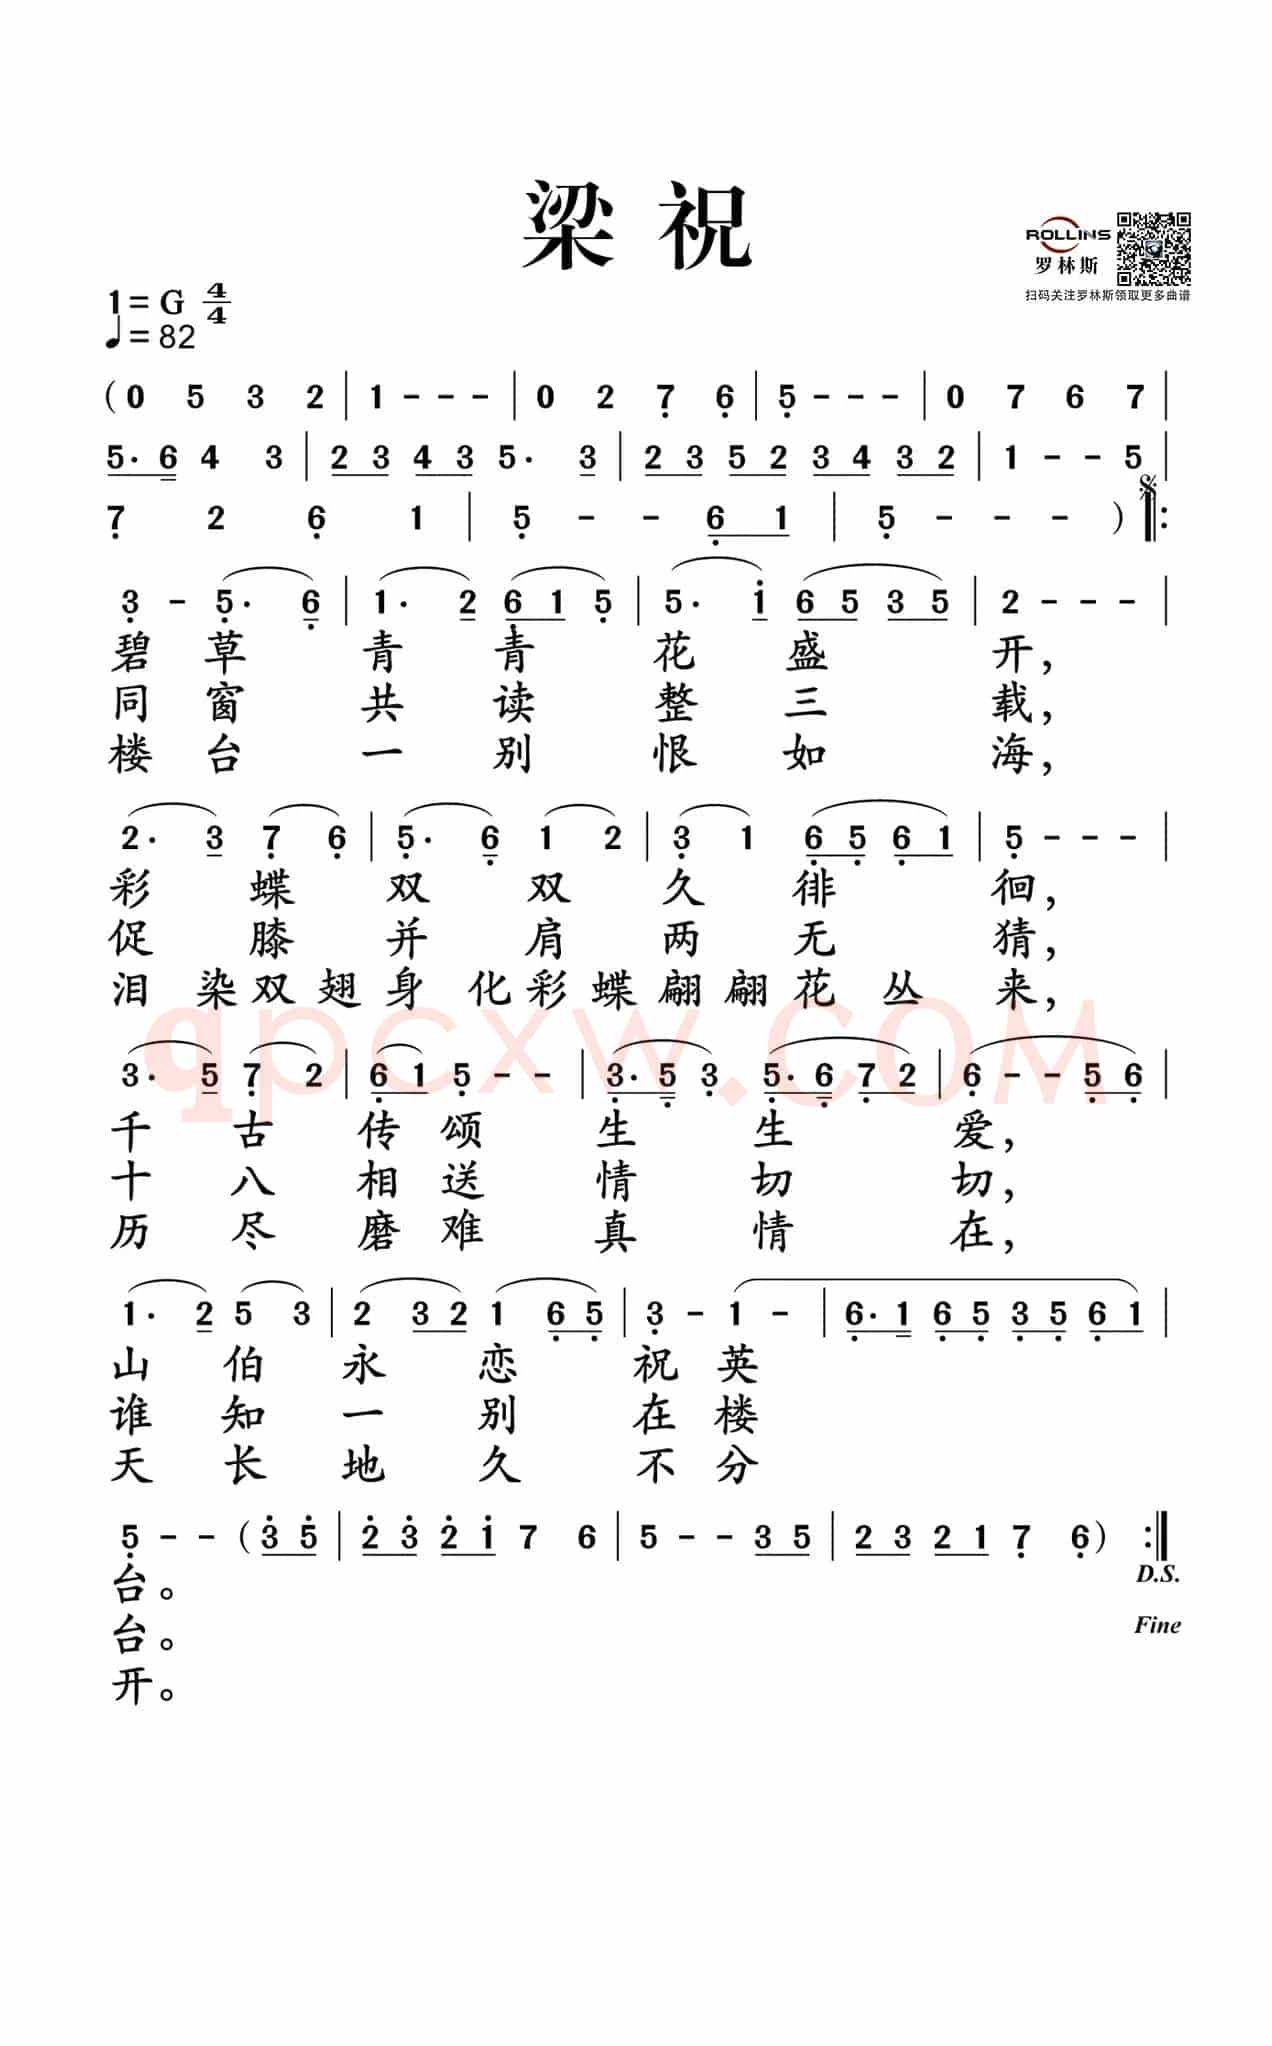 梁 祝
ROLLINS
罗林斯
扫码关注罗林斯领取更多曲谱
1= G 4/4
♩= 82
( 0 5 3 2 | 1 - - - | 0 2 7̣ 6̣ | 5̣ - - - | 0 7 6 7 |
5· 6 4 3 | 2 3 4 3 5· 3 | 2 3 5 2 3 4 3 2 | 1 - - 5 |
7̣ 2 6̣ 1 | 5̣ - - 6̣ 1 | 5̣ - - - ) 𝄋 ‖:
3̣ - 5̣· 6̣ | 1· 2 6̣ 1 5̣ | 5· 1̇ 6 5 3 5 | 2 - - - |
碧 草 青 青 花 盛 开，
同 窗 共 读 整 三 载，
楼 台 一 别 恨 如 海，
2· 3 7̣ 6̣ | 5̣· 6̣ 1 2 | 3̣ 1 6̣ 5̣ 6̣ 1 | 5̣ - - - |
彩 蝶 双 双 久 徘 徊，
促 膝 并 肩 两 无 猜，
泪 染 双 翅 身 化 彩 蝶 翩 翩 花 丛 来，
qpcxw.COM
3· 5 7̣ 2 | 6̣ 1 5̣ - - | 3̣· 5̣ 3̣ 5̣· 6̣ 7̣ 2 | 6̣ - - 5̣ 6̣ |
千 古 传 颂 生 生 爱，
十 八 相 送 情 切 切，
历 尽 磨 难 真 情 在，
1· 2 5 3 | 2 3 2 1 6̣ 5̣ | 3̣ - 1 - | 6̣· 1 6̣ 5̣ 3̣ 5̣ 6̣ 1 |
山 伯 永 恋 祝 英
谁 知 一 别 在 楼
天 长 地 久 不 分
5̣ - - ( 3̇ 5̇ | 2̇ 3̇ 2̇ 1̇ 7 6 | 5 - - 3 5 | 2 3 2 1 7̣ 6̣ ) :‖
D.S.
台。
台。
Fine
开。